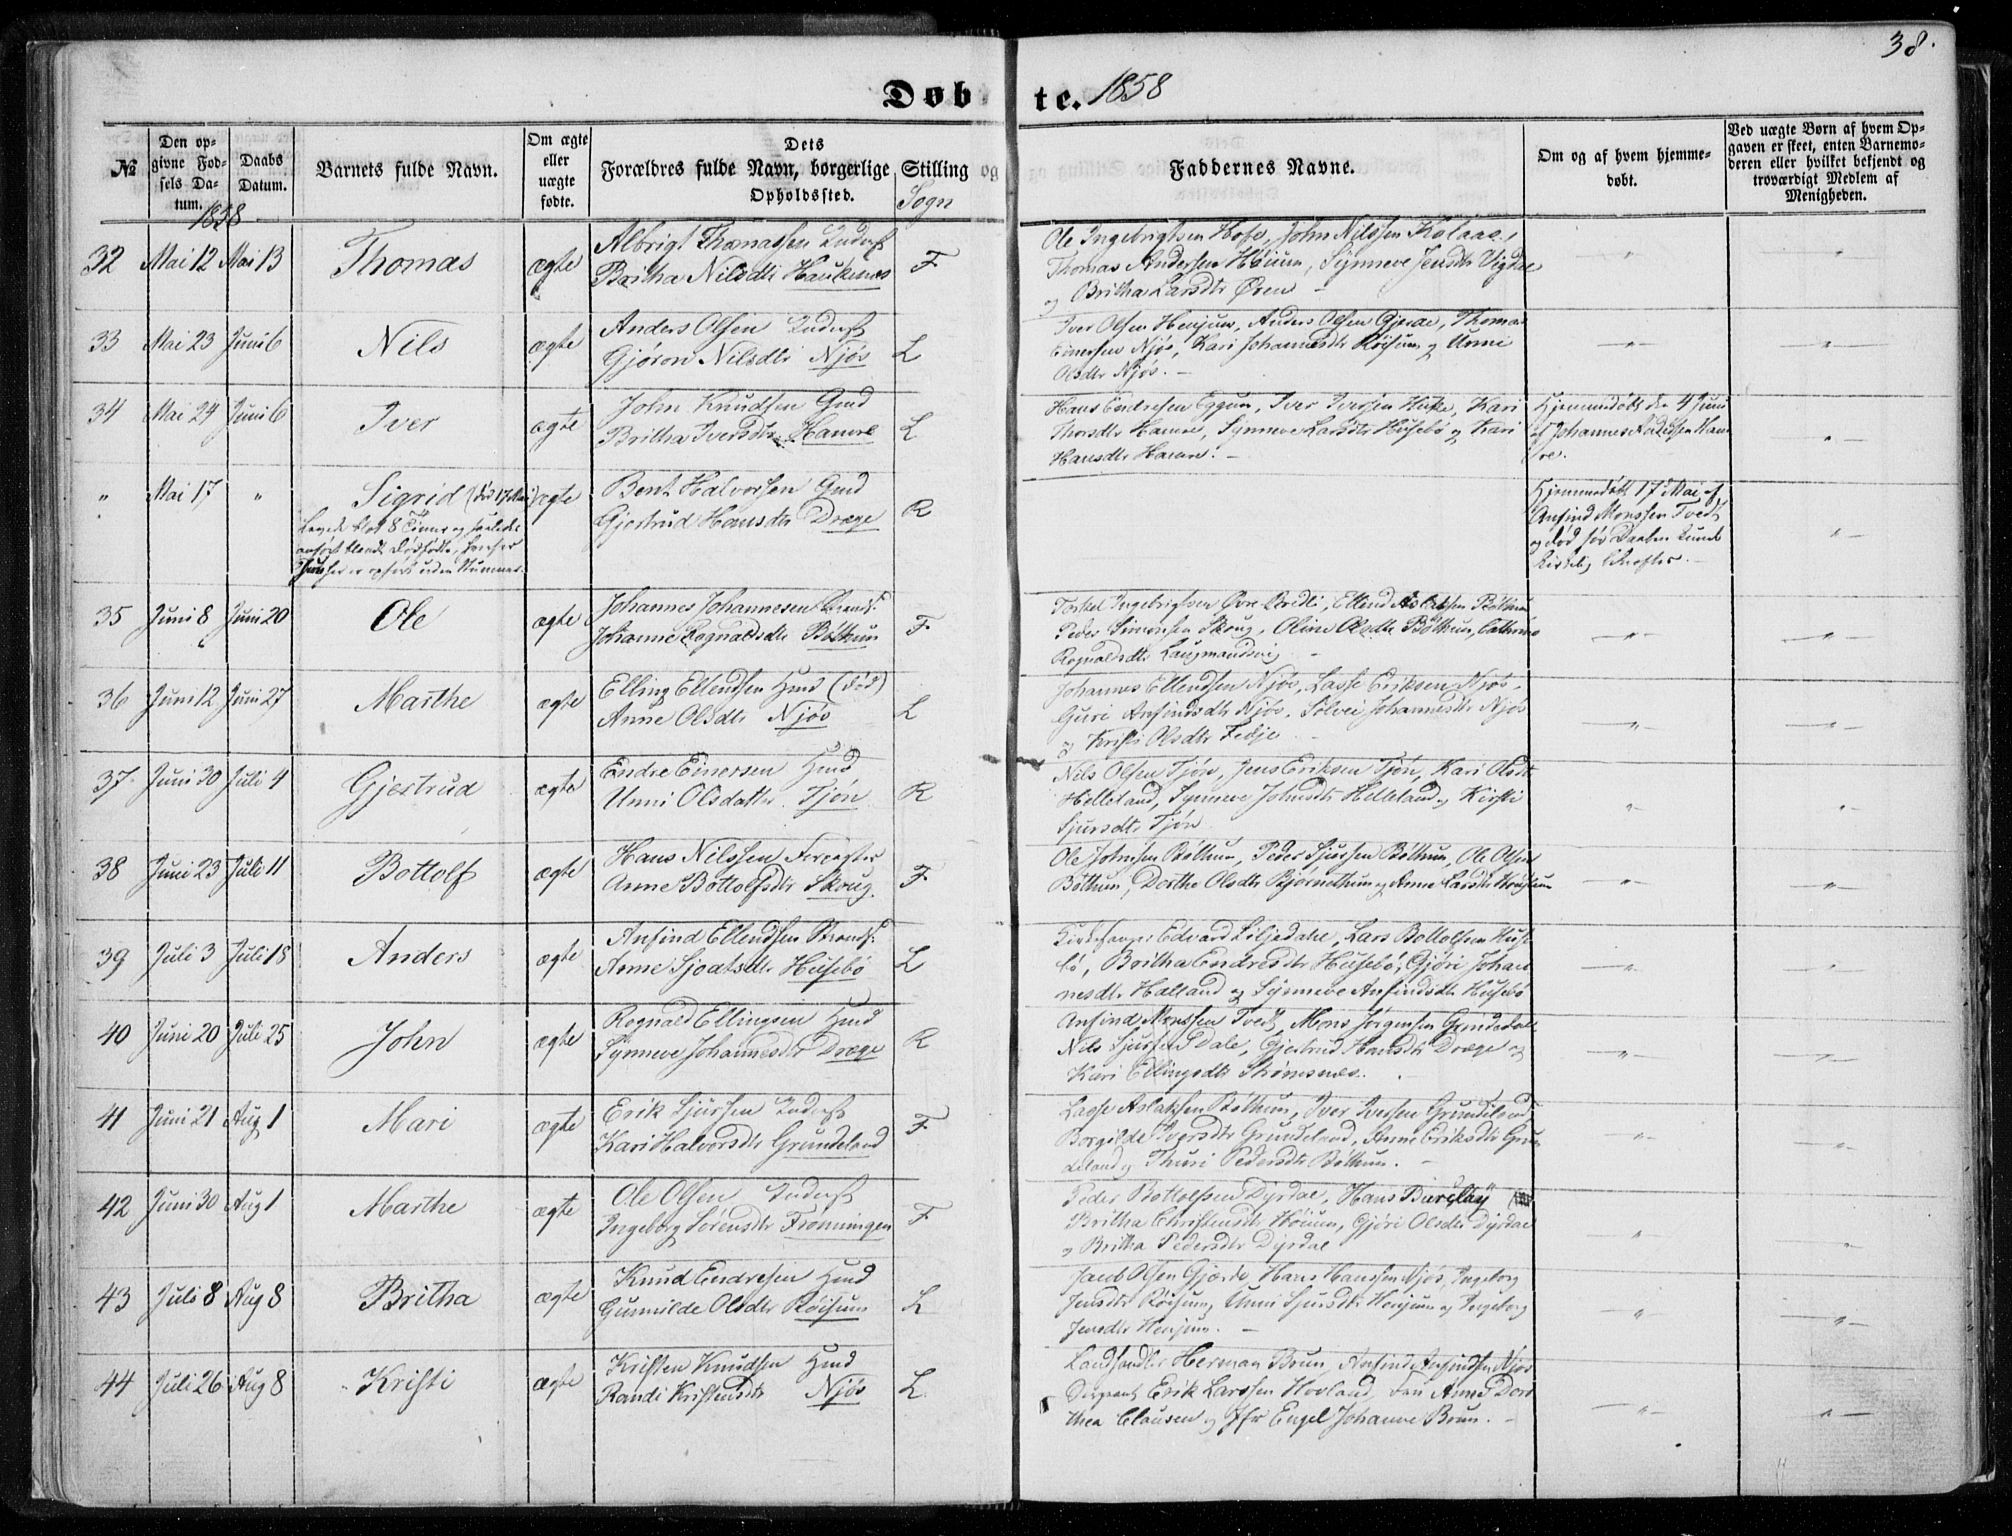 38.
Døbte. 1858
№
Den opgivne Fødsels Datum.
Daabs Datum.
Barnets fulde Navn.
Om ægte eller uægte fødte.
Dets Forældres fulde Navn, borgerlige Stilling og Opholdssted.
Sogn
Faddernes Navne.
Om og af hvem hjemmedøbt.
Ved uægte Børn af hvem Opgaven er skeet, enten Barnemoderen eller hvilket bekjendt og troværdigt Medlem af Menigheden.
1858
32 Mai 12 Mai 13 Thomas ægte Albrigt Thomassen Inderst
Britha Nilsdtr Hauknes F
Ole Ingebrigtsen Hofe, John Nilssen Kalaas,
Thomas Andersen Høium, Synneve Jensdtr Vigdal
og Britha Larsdtr Øren
33 Mai 23 Juni 6 Nils ægte Anders Olsen Inderst
Gjøron Nilsdtr Njøs L
Iver Olsen Henjum, Anders Olsen Gjerde, Thomas
Einersen Njøs, Kari Johannesdtr Røisum og Unni
Olsdtr Njøs.
34 Mai 24 Juni 6 Iver ægte John Knudsen Gmd
Britha Iversdtr Hamre L
Hans Endresen Eggum, Iver Iversen Hukse, Kari
Thorsdtr Hamre, Synneve Larsdtr Husebø og Kari
Hansdtr Hamre.
Hjemmedøbt den 4 Juni
af Johannes Andersen Ham
re.
" Mai 17 " Sigrid (død 17 Mai) ægte Bent Halvorsen Gmd
Gjertrud Hansdtr Dræge R
Levede blot 8 Timer og saaledes
anført blandt Dødfødte, hvorfor
hun her er opført uden Nummer.
Hjemmedøbt 17 Mai af
Anfind Monssen Tvedt
og død før Daaben kunde
35 Juni 8 Juni 20 Ole ægte Johannes Johannesen Strands.
Johanne Rognaldsdtr Bøthun F
Torkel Ingebrigtsen Øvre Bredli, Ellend Aslaksen Bøthun
Peder Simonsen Skoug, Oline Olsdtr Bøthun, Cathrine
Rognaldsdtr Laugmandsvig
36 Juni 12 Juni 27 Marthe ægte Elling Ellendsen Hmd (død)
Anne Olsdtr Njøs L
Johannes Ellendsen Njøs, Lasse Eriksen Njøs,
Guri Anfindsdtr Njøs, Solvei Johannesdtr Njøs
og Kristi Olsdtr Fedje
37 Juni 30 Juli 4 Gjertrud ægte Endre Einersen Hmd
Unni Olsdatter Tjøn R
Nils Olsen Tjøn, Jens Eriksen Tjøn, Kari Olsdtr
Helleland, Synneve Johnsdtr Helleland og Kirsti
Sjursdtr Tjøn
38 Juni 23 Juli 11 Bottolf ægte Hans Nilssen Forpagter
Anne Bottolfsdtr Skoug. F
Ole Johnsen Bøthun, Peder Sjursen Bøthun, Ole Olsen
Bøthun, Dorthe Olsdtr Bjørnethun og Anne Larsdtr
39 Juli 3 Juli 18 Anders ægte Anfind Ellendsen Strands.
Anne Sjoatsdtr Husebø L
Kirkesanger Edvard Liljedahl, Lars Bottolfsen Huse
bø, Britha Endresdtr Husebø, Gjøri Johan
nesdtr Halland og Synneve Anfindsdtr Husebø
40 Juni 20 Juli 25 John ægte Rognald Ellingsen Hmd
Synneve Johannesdtr Dræge R
Anfind Monssen Tvedt, Mons Jørgensen Grindedal
Nils Sjursen Dale, Gjertrud Hansdtr Dræge og
Kari Ellingsdtr Strømsnes.
41 Juni 21 Aug 1 Mari ægte Erik Sjursen Inderst
Kari Halvorsdtr Grundeland F
Lasse Aslaksen Bøthun, Iver Iversen Grundeland
Borgilde Iversdtr Grundeland, Anne Eriksdtr Grun
deland og Thuri Pedersdtr Bøthun.
42 Juni 30 Aug 1 Marthe ægte Ole Olsen Inderst
Ingeborg Sørensdtr Frønningen F
Peder Bottolfssen Dyrdal, Hans Barclay
Britha Christensdtr Høium, Gjøri Olsdtr Dyrdal
og Britha Pedersdtr Dyrdal
43 Juli 8 Aug 8 Britha ægte Knud Endresen Hmd
Gunnilde Olsdtr Røisum L
Jacob Olsen Gjærde, Hans Hanssen Njøs, Ingeborg
Jensdtr Røisum, Unni Sjursdtr Henjum og Ingeborg
Jensdtr Henjum.
44 Juli 26 Aug 8 Kristi ægte Kristen Knudsen Hmd
Randi Kristensdtr Njøs L
Landhandler Herman Brun, Anfind Anfindsen Njøs
Sergeant Erik Larssen Hovland, Fru Anne Doro
thea Clausen og Jfr Engel Johanne Brun.